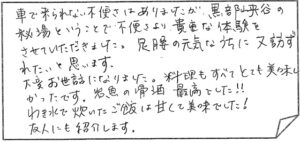 車で来られない不便さはありますが、黒部渓谷の
秘湯ということで不便さより貴重な体験を
させていただきました。足腰の元気なうちに又訪ず
れたいと思います。
大変お世話になりました。料理もすべてとても美味し
かったです。岩魚の骨酒 最高でした!!
わき水で炊いたご飯は甘くて美味でした!
友人にも紹介します。